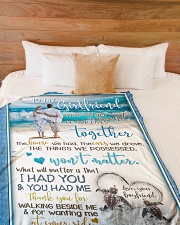 TO MY Girlfriend
together
The house we had, The cars we drove,
THE THINGS WE POSSESSED,
won't matter.
What will matter is that
I HAD YOU
& YOU HAD ME
Thank you for
WALKING BESIDE ME
& for wanting me
at your side
Love, your
boyfriend